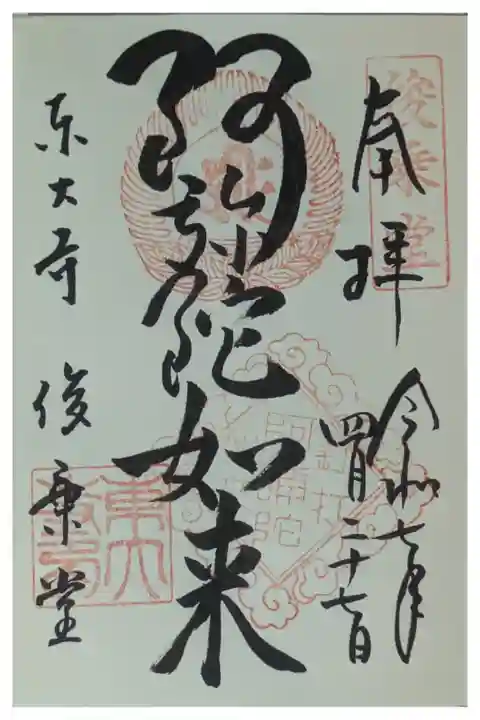 奉拝
俊乗堂
令和七年
四月二十七日
阿弥陀如来
東大寺
俊乗堂
東大